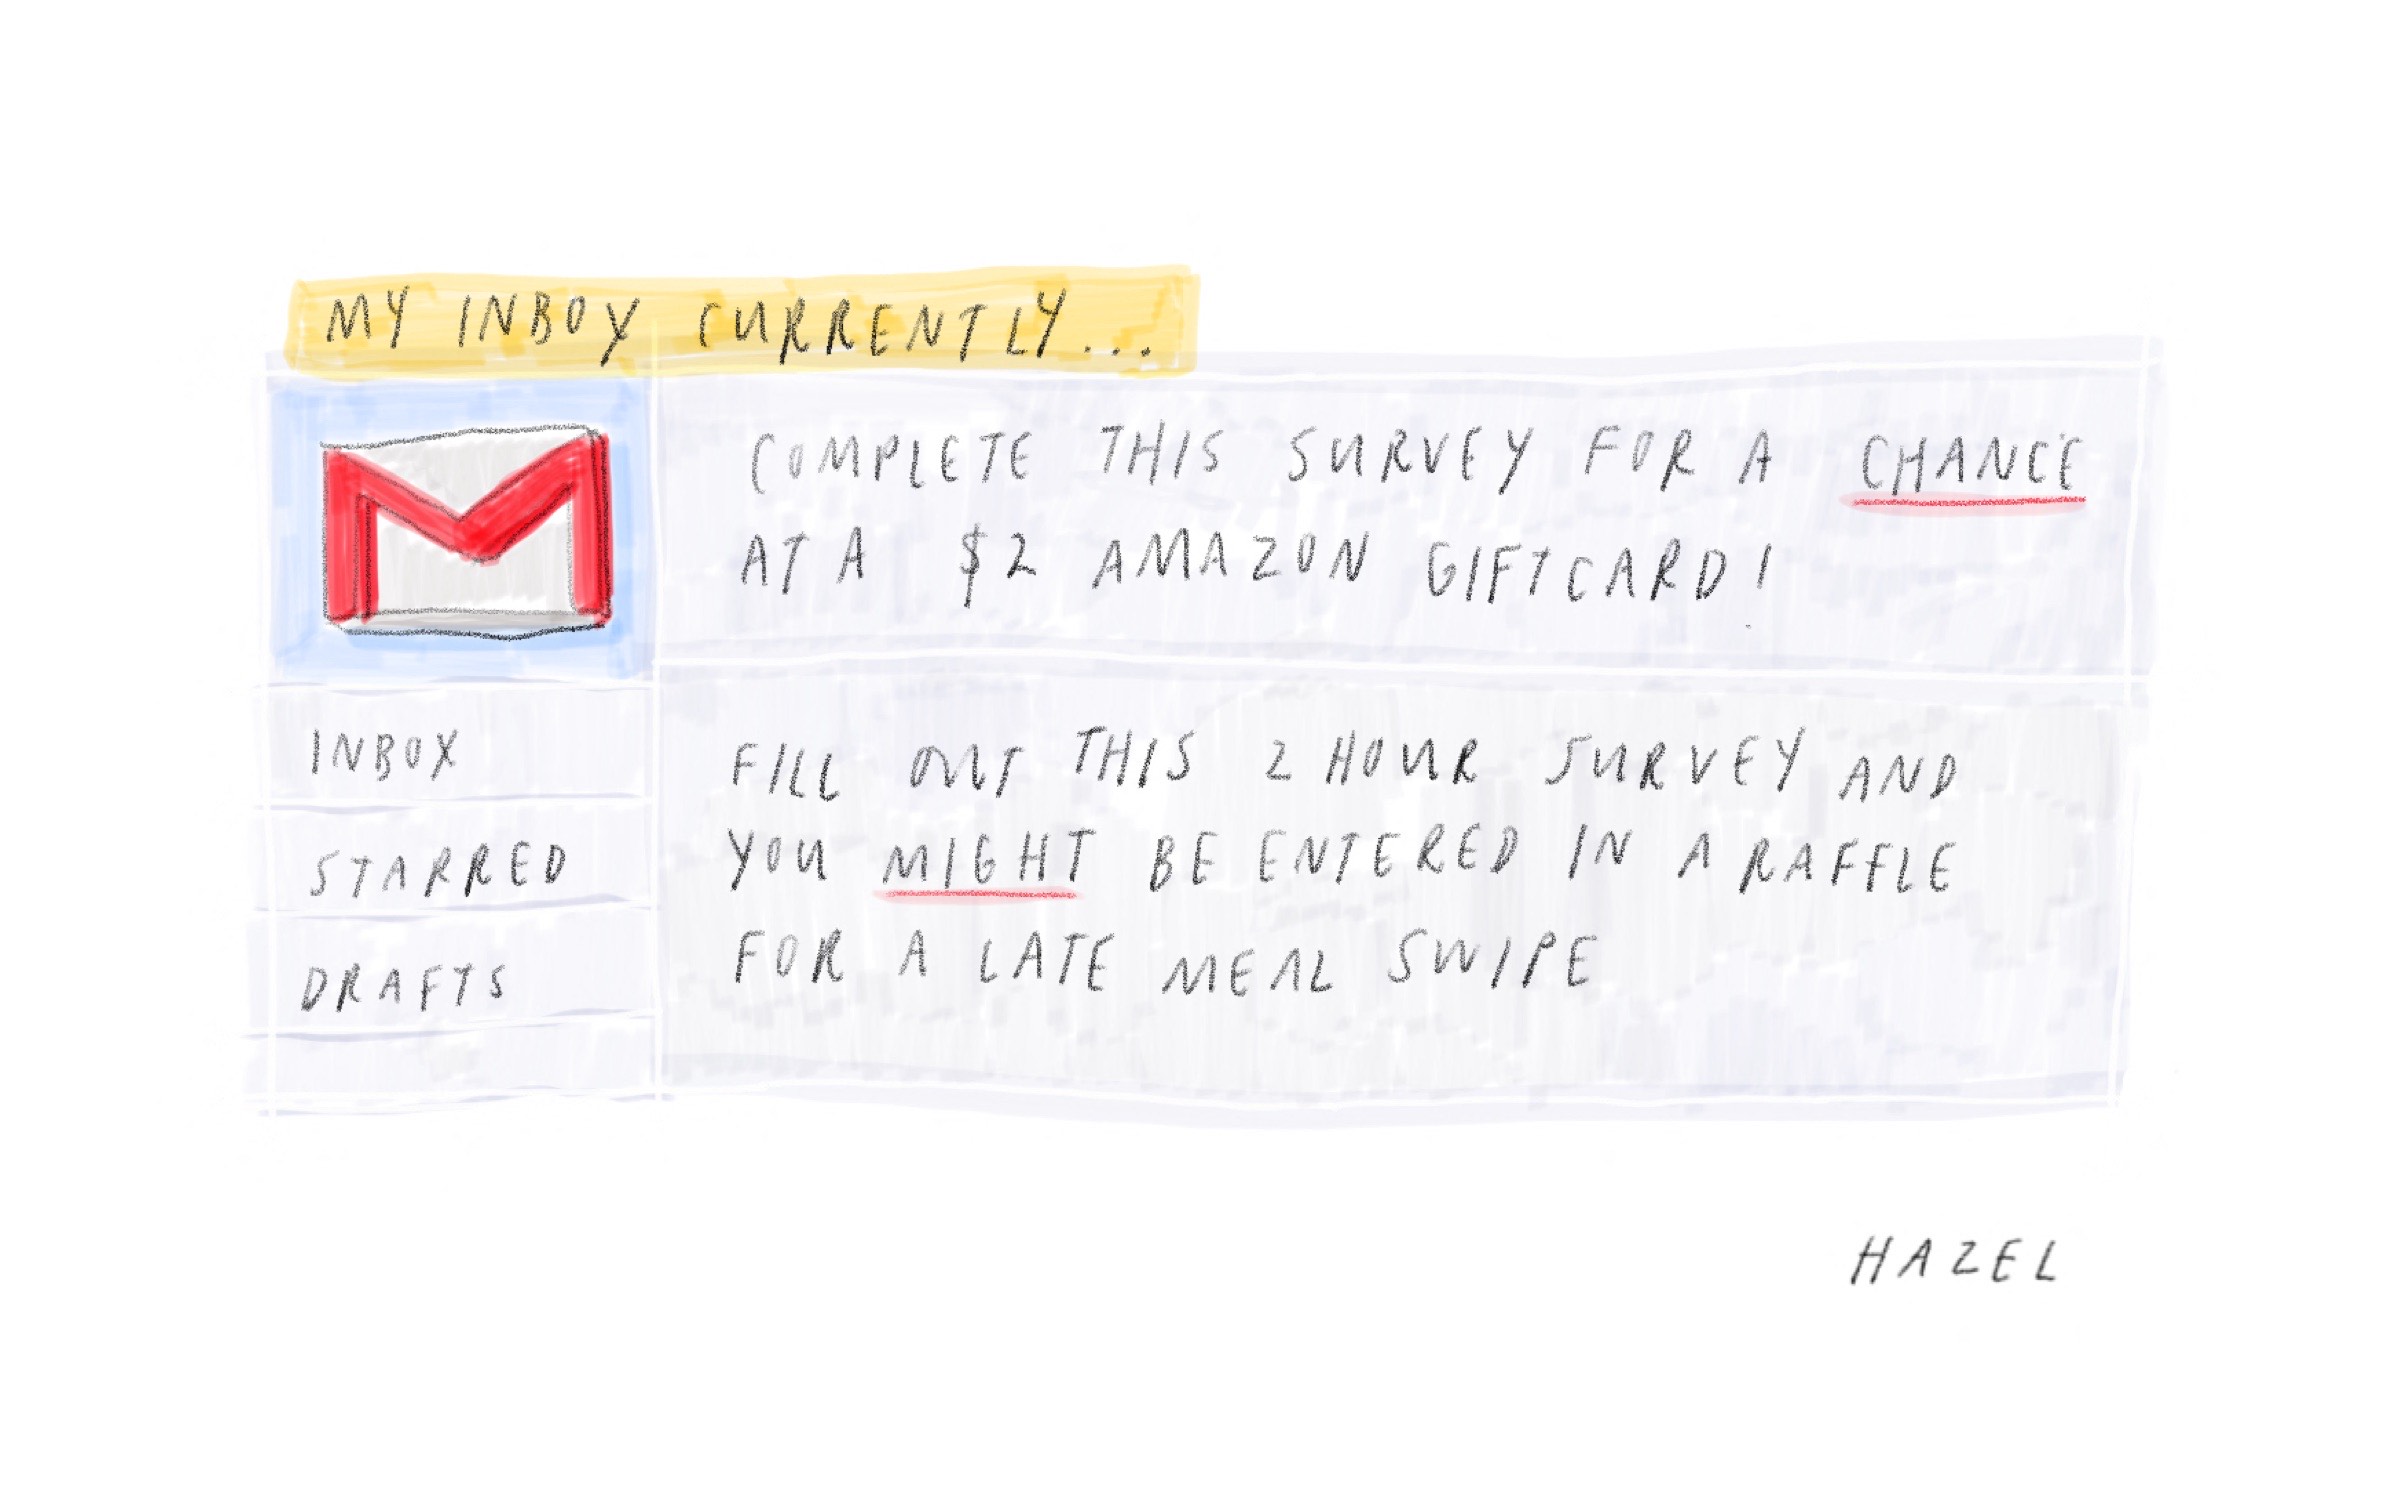 MY INBOX CURRENTLY...
COMPLETE THIS SURVEY FOR A CHANCE
AT A $2 AMAZON GIFTCARD!
INBOX
STARRED
DRAFTS
FILL OUT THIS 2 HOUR SURVEY AND
YOU MIGHT BE ENTERED IN A RAFFLE
FOR A LATE MEAL SWIPE
HAZEL